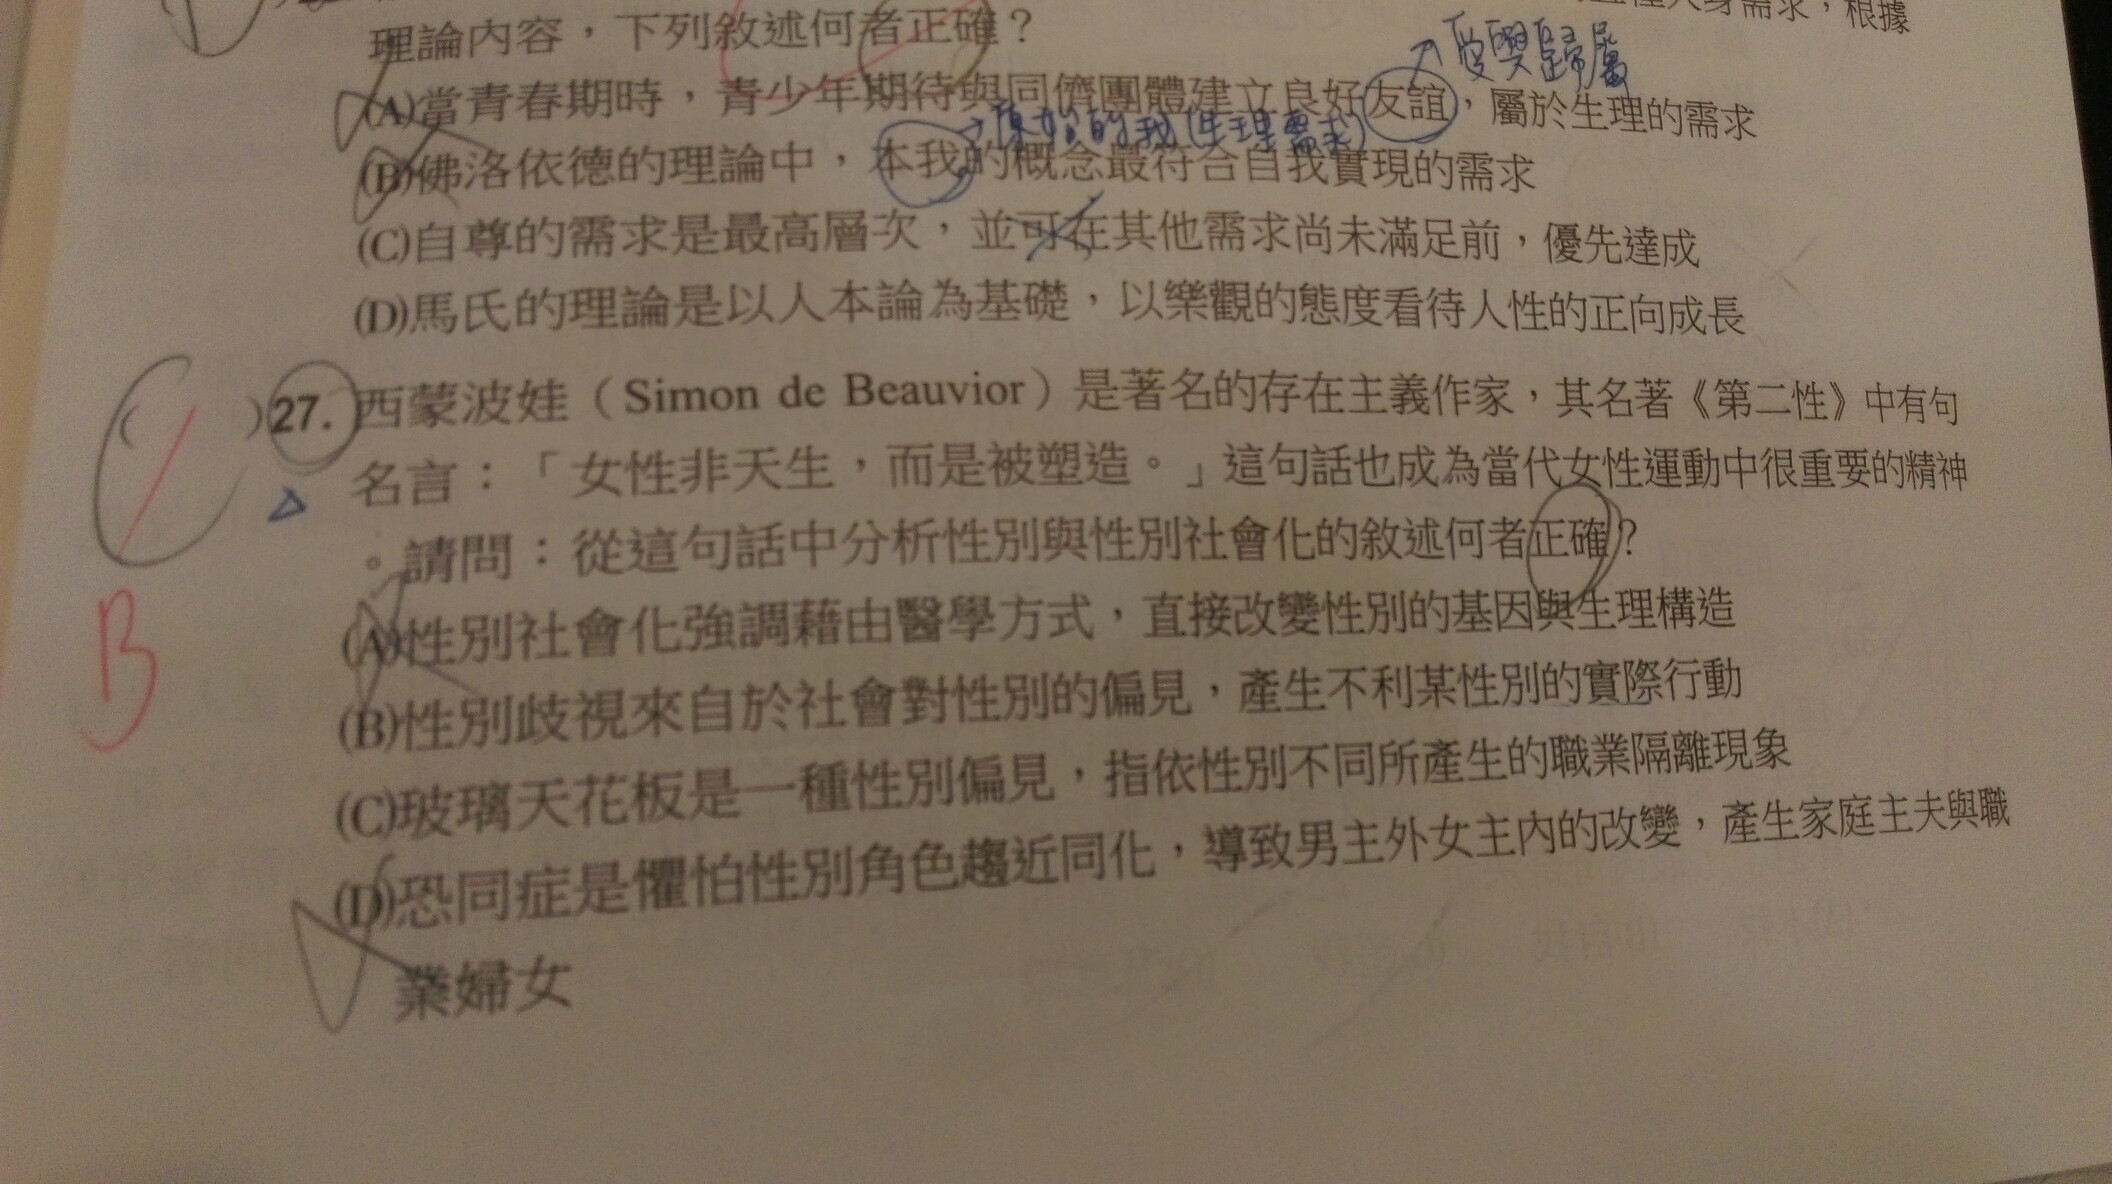 種人身需求，根據
理論內容，下列敘述何者正確？
愛與歸屬
(A)當青春期時，青少年期待與同儕團體建立良好友誼，屬於生理的需求
→原始的我(生理需求)
(B)佛洛依德的理論中，本我的概念最符合自我實現的需求
(C)自尊的需求是最高層次，並可在其他需求尚未滿足前，優先達成
(D)馬氏的理論是以人本論為基礎，以樂觀的態度看待人性的正向成長
(C)27. 西蒙波娃（Simon de Beauvior）是著名的存在主義作家，其名著《第二性》中有句
名言：「女性非天生，而是被塑造。」這句話也成為當代女性運動中很重要的精神
。請問：從這句話中分析性別與性別社會化的敘述何者正確？
(A)性別社會化強調藉由醫學方式，直接改變性別的基因與生理構造
B
(B)性別歧視來自於社會對性別的偏見，產生不利某性別的實際行動
(C)玻璃天花板是一種性別偏見，指依性別不同所產生的職業隔離現象
(D)恐同症是懼怕性別角色趨近同化，導致男主外女主內的改變，產生家庭主夫與職
業婦女